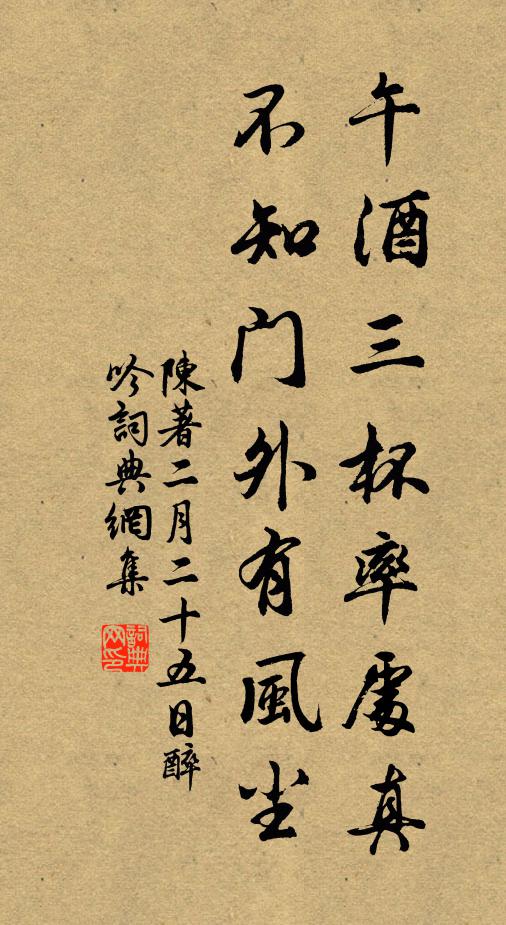 午酒三杯率處真
不知門外有風尘
陳著二月二十五日醉
吟詞典網集
詞典
网印